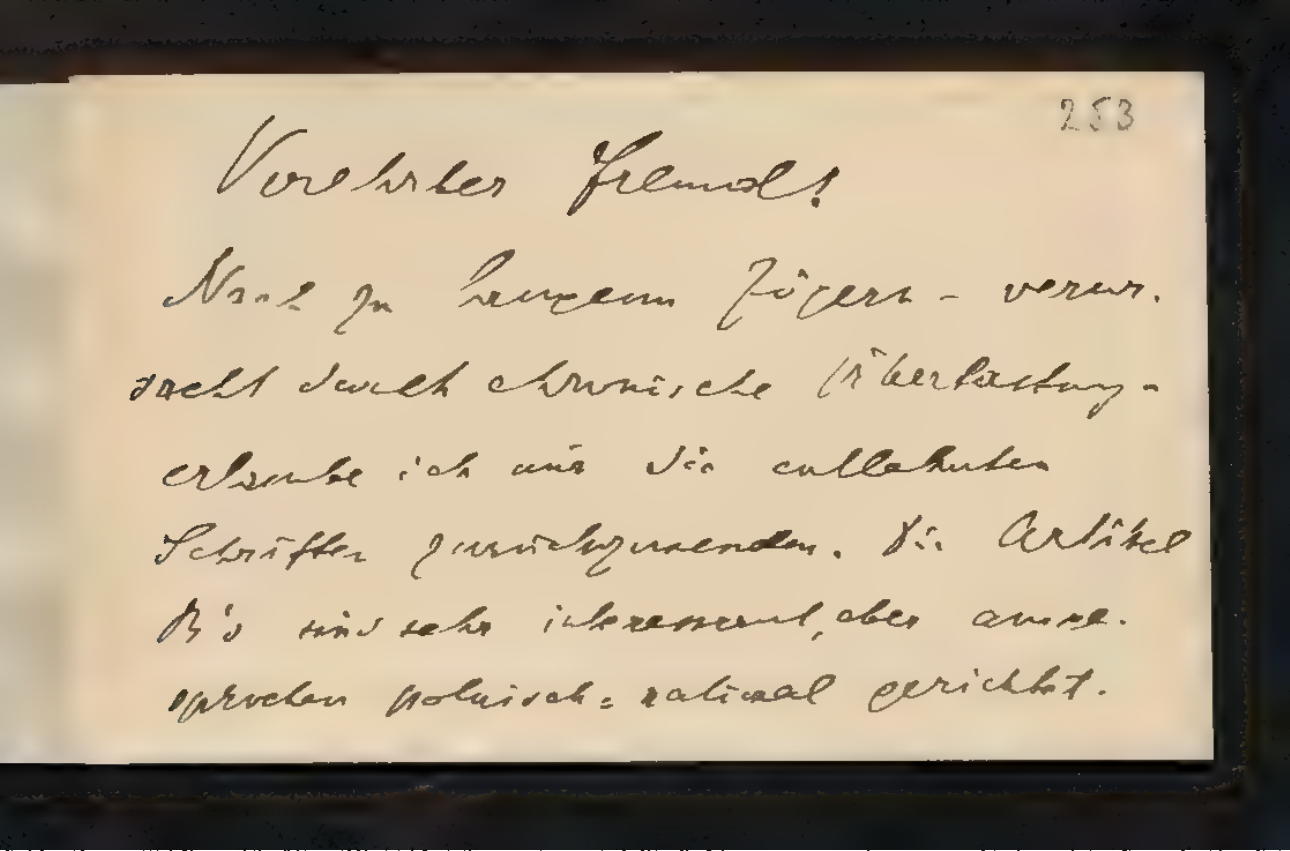 253
Verehrter Freund!
Nach zu langem Zögern - verur-
sacht durch chronische Überlastung -
erlaube ich mir die entlehnten
Schriften zurückzusenden. Die Artikel
B's sind sehr interessant, aber ausge-
sprochen polnisch=national gerichtet.